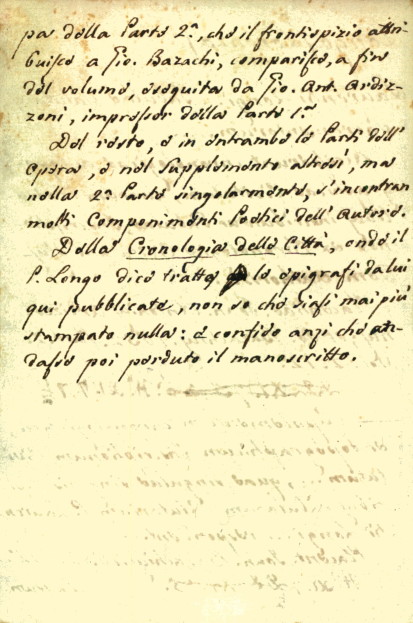 pa della Parte 2.ª, che il frontispizio attri-
buisce a Gio. Bazachi, comparisce, a fine
del volume, eseguita da Gio. Ant. Ardiz-
zoni, impressor della Parte 1.ª
Del resto, e in entrambe le Parti dell'
Opera, e nel Supplemento altresì, ma
nella 2.ª Parte singolarmente, s'incontran
molti Componimenti Poetici dell'Autore.
Della Cronologia delle Città, onde il
P. Longo dice tratte le epigrafi da lui
qui pubblicate, non so che siasi mai più
stampato nulla: e confido anzi che an-
dasse poi perduto il manoscritto.